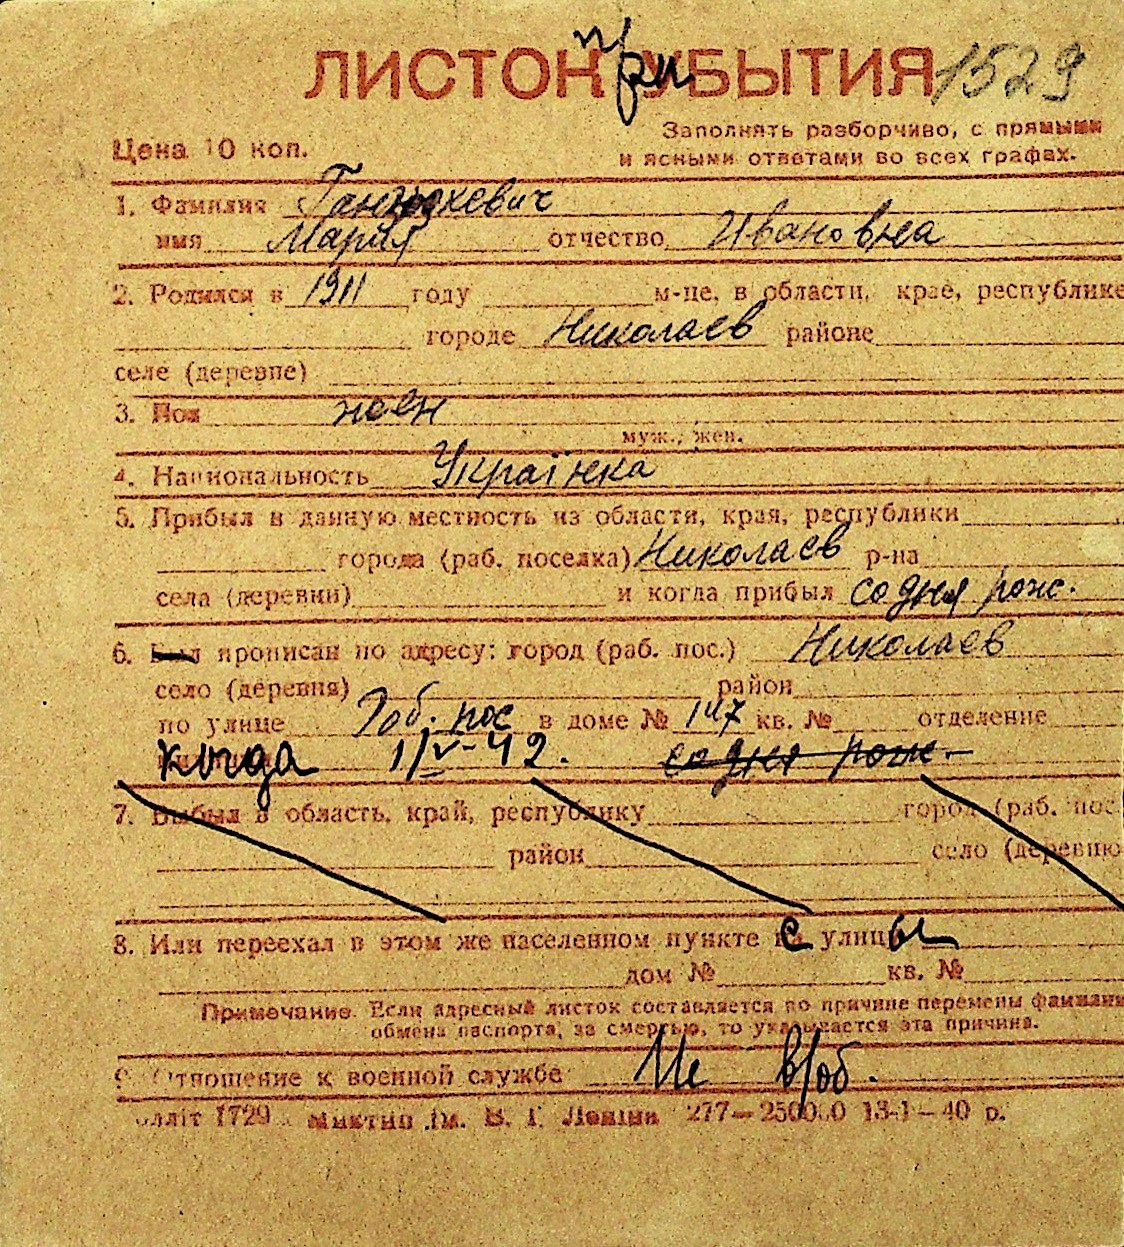 ЛИСТОК при УБЫТИЯ 1529
Цена 10 коп.
Заполнять разборчиво, с прямыми
и ясными ответами во всех графах.
1. Фамилия
имя Мария отчество Ивановна
2. Родился в 1911 году м-це, в области, крае, республике
городе Николаев районе
селе (деревне)
3. Пол жен
муж., жен.
4. Национальность Українка
5. Прибыл в данную местность из области, края, республики
города (раб. поселка) Николаев р-на
села (деревни) и когда прибыл со дня рож.
6. Был прописан по адресу: город (раб. пос.) Николаев
село (деревня) район
по улице пос в доме № 147 кв. № отделение
когда 1/V-42. со дня рож.
7. Выбыл в область, край, республику город (раб. пос.
район село (деревню
8. Или переехал в этом же населенном пункте с улицы
дом № кв. №
Примечание. Если адресный листок составляется по причине перемены фамилии
обмена паспорта, за смертью, то указывается эта причина.
9. Отношение к военной службе Не в/об.
1729 ім. В. І. Леніна 277— 13-1-40 р.